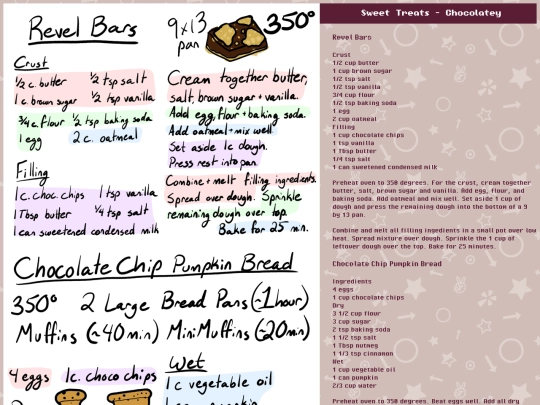 Revel Bars
9x13 pan
350°
Crust
1/2 c. butter 1/2 tsp salt
1 c. brown sugar 1/2 tsp vanilla
3/4 c. flour 1/2 tsp baking soda
1 egg 2 c. oatmeal
Filling
1 c. choc. chips 1 tsp vanilla
1 Tbsp butter 1/4 tsp salt
1 can sweetened condensed milk
Cream together butter,
salt, brown sugar + vanilla.
Add egg, flour + baking soda.
Add oatmeal + mix well.
Set aside 1c dough.
Press rest into pan.
Combine + melt filling ingredients.
Spread over dough. Sprinkle
remaining dough over top.
Bake for 25 min.
Chocolate Chip Pumpkin Bread
350° 2 Large Bread Pans (~1 hour)
Muffins (~40 min) Mini Muffins (~20 min)
4 eggs 1c. choco chips
Wet
1 c vegetable oil
Sweet Treats - Chocolatey
Revel Bars
Crust
1/2 cup butter
1 cup brown sugar
1/2 tsp salt
1/2 tsp vanilla
3/4 cup flour
1/2 tsp baking soda
1 egg
2 cup oatmeal
Filling
1 cup chocolate chips
1 tsp vanilla
1 Tbsp butter
1/4 tsp salt
1 can sweetened condensed milk
Preheat oven to 350 degrees. For the crust, cream together
butter, salt, brown sugar and vanilla. Add egg, flour, and
baking soda. Add oatmeal and mix well. Set aside 1 cup of
dough and press the remaining dough into the bottom of a 9
by 13 pan.
Combine and melt all filling ingedients in a small pot over low
heat. Spread mixture over dough. Sprinkle the 1 cup of
leftover dough over the top. Bake for 25 minutes.
Chocolate Chip Pumpkin Bread
Ingredients
4 eggs
1 cup chocolate chips
Dry
3 1/2 cup flour
3 cup sugar
2 tsp baking soda
1 1/2 tsp salt
1 Tbsp nutmeg
1 1/3 tsp cinnamon
Wet
1 cup vegetable oil
1 can pumpkin
2/3 cup water
Preheat oven to 350 degrees. Beat eggs well. Add all dry